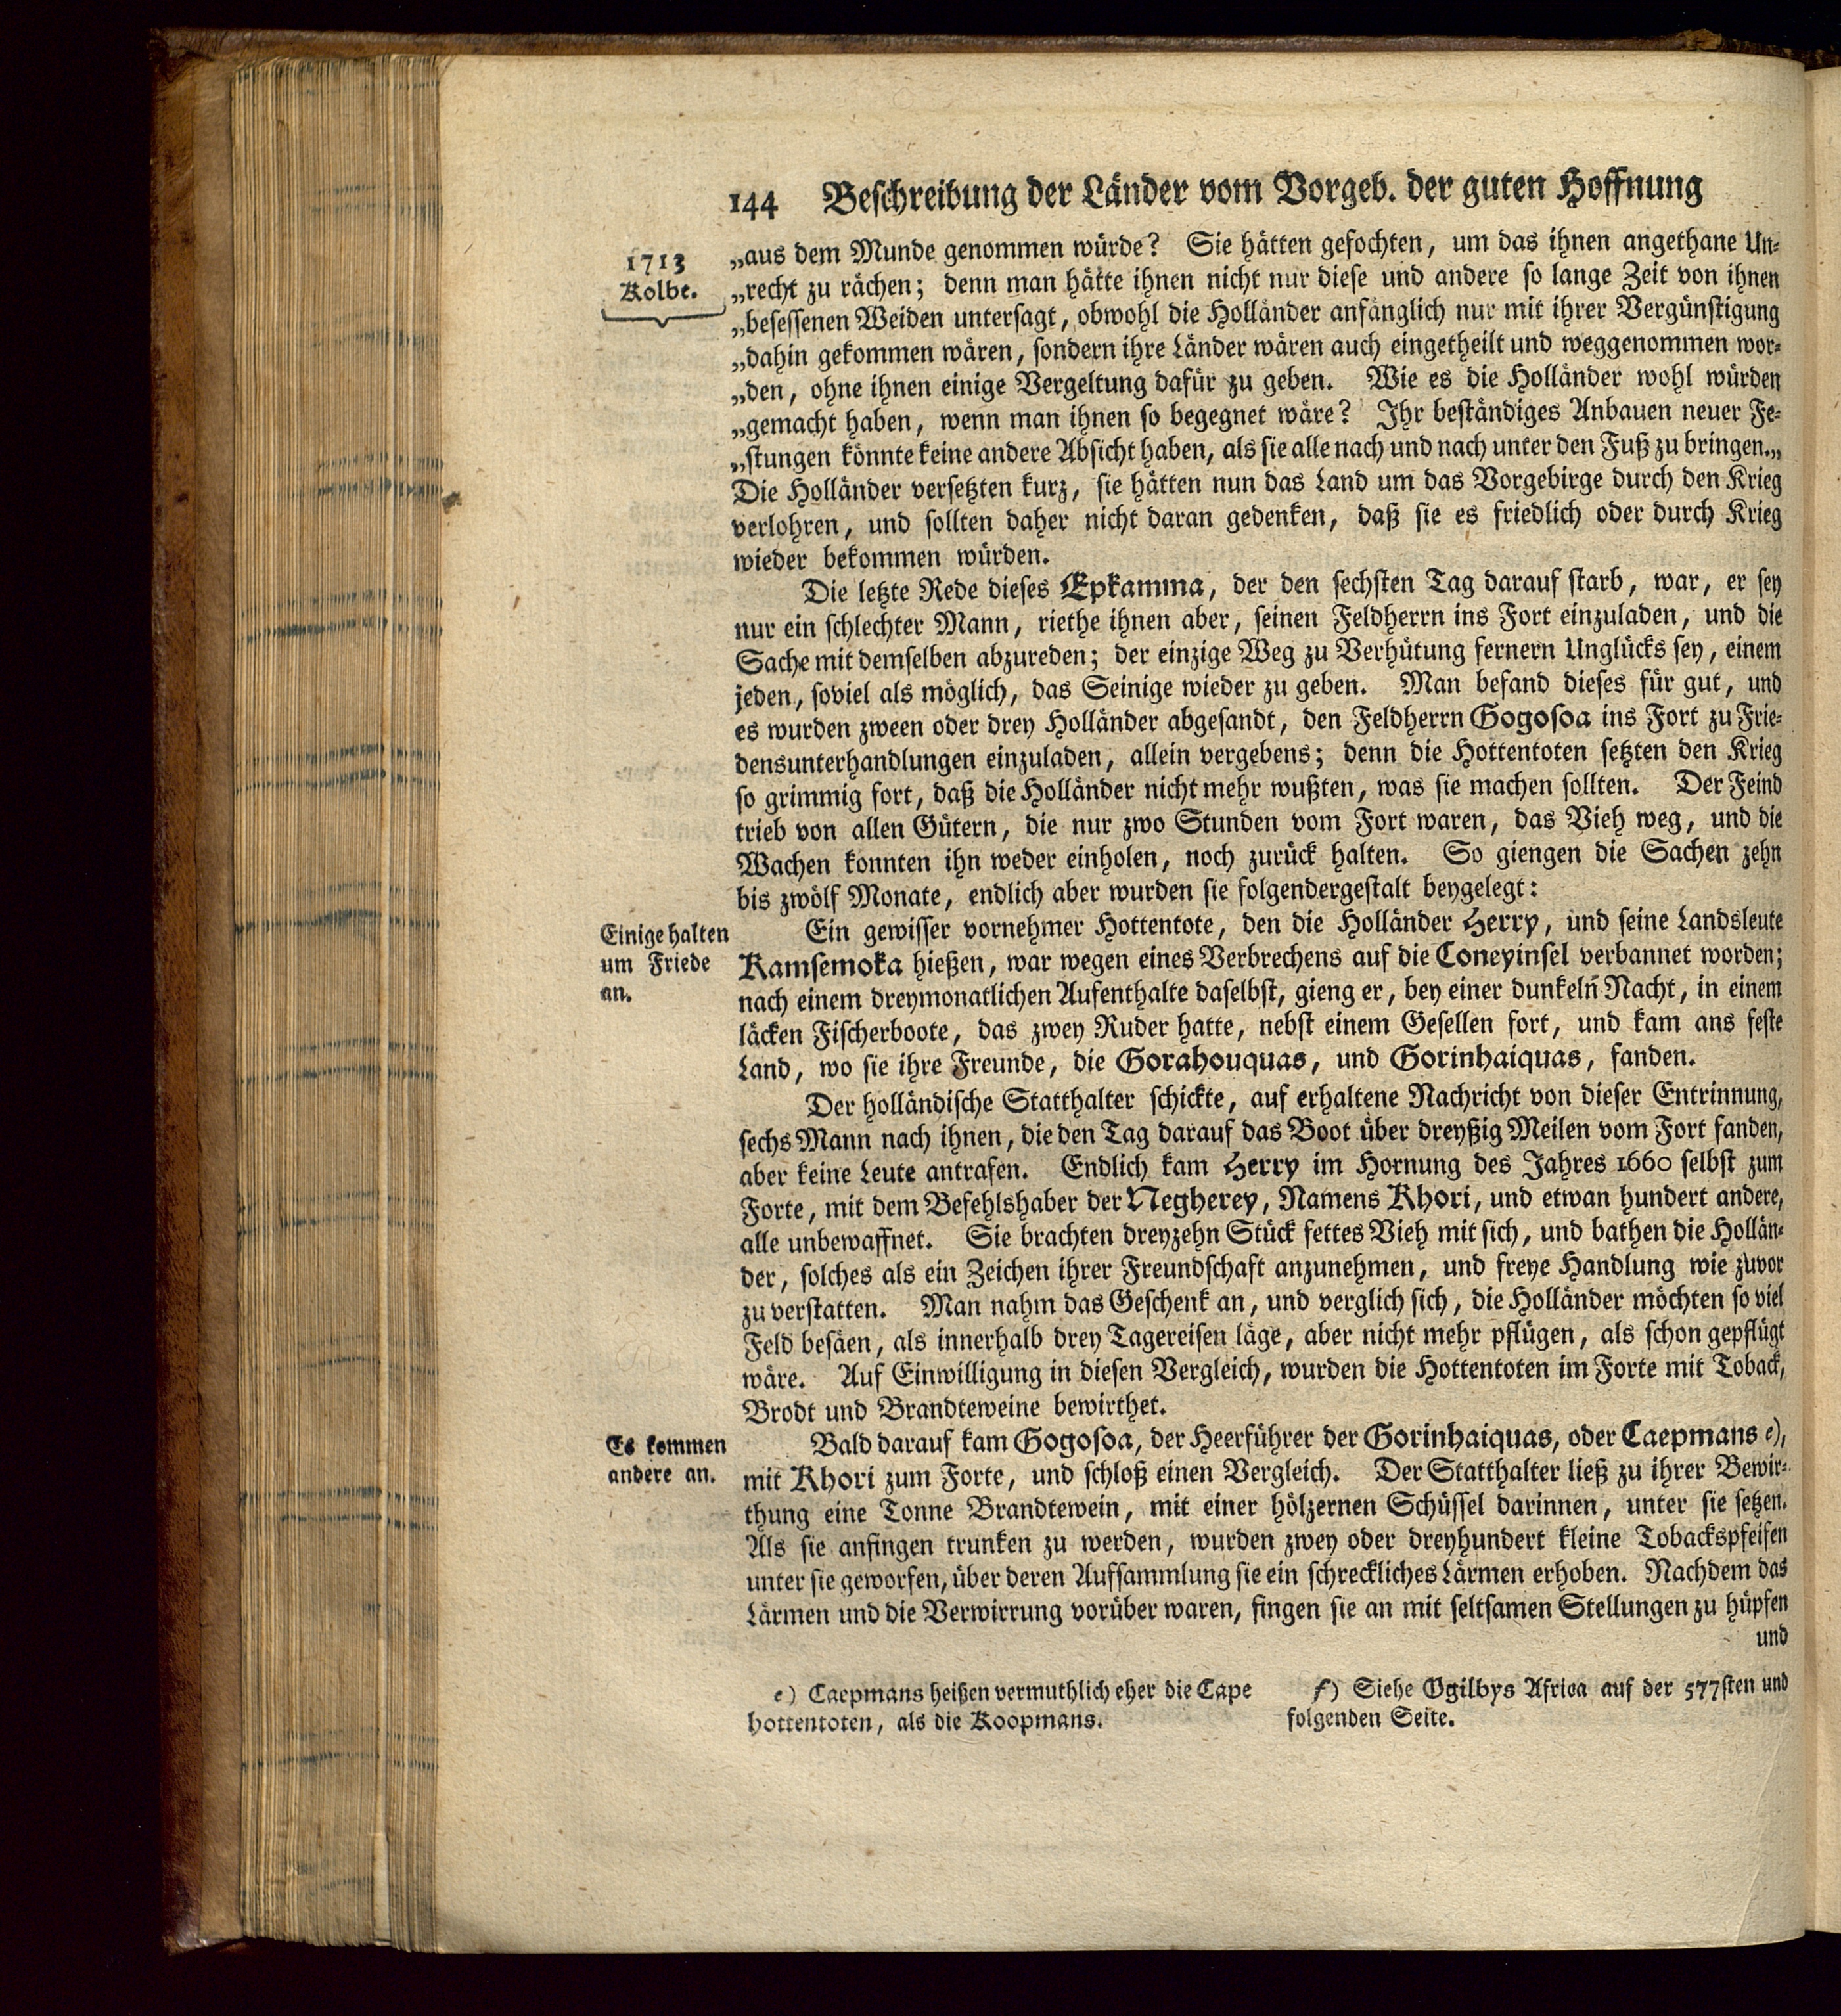 144 Beschreibung der Länder vom Vorgeb. der guten Hoffnung
1713
Kolbe.
„aus dem Munde genommen würde? Sie hätten gefochten, um das ihnen angethane Un-
„recht zu rächen; denn man hätte ihnen nicht nur diese und andere so lange Zeit von ihnen
„besessenen Weiden untersagt, obwohl die Holländer anfänglich nur mit ihrer Vergünstigung
„dahin gekommen wären, sondern ihre Länder wären auch eingetheilt und weggenommen wor-
„den, ohne ihnen einige Vergeltung dafür zu geben. Wie es die Holländer wohl würden
„gemacht haben, wenn man ihnen so begegnet wäre? Ihr beständiges Anbauen neuer Fe-
„stungen könnte keine andere Absicht haben, als sie alle nach und nach unter den Fuß zu bringen.„
Die Holländer versetzten kurz, sie hätten nun das Land um das Vorgebirge durch den Krieg
verlohren, und sollten daher nicht daran gedenken, daß sie es friedlich oder durch Krieg
wieder bekommen würden.
Die letzte Rede dieses Epkamma, der den sechsten Tag darauf starb, war, er sey
nur ein schlechter Mann, riethe ihnen aber, seinen Feldherrn ins Fort einzuladen, und die
Sache mit demselben abzureden; der einzige Weg zu Verhütung fernern Unglücks sey, einem
jeden, soviel als möglich, das Seinige wieder zu geben. Man befand dieses für gut, und
es wurden zween oder drey Holländer abgesandt, den Feldherrn Gogosoa ins Fort zu Frie-
densunterhandlungen einzuladen, allein vergebens; denn die Hottentoten setzten den Krieg
so grimmig fort, daß die Holländer nicht mehr wußten, was sie machen sollten. Der Feind
trieb von allen Gütern, die nur zwo Stunden vom Fort waren, das Vieh weg, und die
Wachen konnten ihn weder einholen, noch zurück halten. So giengen die Sachen zehn
bis zwölf Monate, endlich aber wurden sie folgendergestalt beygelegt:
Einige halten
um Friede
an.
Ein gewisser vornehmer Hottentote, den die Holländer Herry, und seine Landsleute
Kamsemoka hießen, war wegen eines Verbrechens auf die Coneyinsel verbannet worden;
nach einem dreymonatlichen Aufenthalte daselbst, gieng er, bey einer dunkeln Nacht, in einem
läcken Fischerboote, das zwey Ruder hatte, nebst einem Gesellen fort, und kam ans feste
Land, wo sie ihre Freunde, die Gorahouquas, und Gorinhaiquas, fanden.
Der holländische Statthalter schickte, auf erhaltene Nachricht von dieser Entrinnung,
sechs Mann nach ihnen, die den Tag darauf das Boot über dreyßig Meilen vom Fort fanden,
aber keine Leute antrafen. Endlich kam Herry im Hornung des Jahres 1660 selbst zum
Forte, mit dem Befehlshaber der Negherey, Namens Khori, und etwan hundert andere,
alle unbewaffnet. Sie brachten dreyzehn Stück fettes Vieh mit sich, und bathen die Hollän-
der, solches als ein Zeichen ihrer Freundschaft anzunehmen, und freye Handlung wie zuvor
zu verstatten. Man nahm das Geschenk an, und verglich sich, die Holländer möchten so viel
Feld besäen, als innerhalb drey Tagereisen läge, aber nicht mehr pflügen, als schon gepflügt
wäre. Auf Einwilligung in diesen Vergleich, wurden die Hottentoten im Forte mit Toback,
Brodt und Brandteweine bewirthet.
Es kommen
andere an.
Bald darauf kam Gogosoa, der Heerführer der Gorinhaiquas, oder Caepmans e),
mit Khori zum Forte, und schloß einen Vergleich. Der Statthalter ließ zu ihrer Bewir-
thung eine Tonne Brandtewein, mit einer hölzernen Schüssel darinnen, unter sie setzen.
Als sie anfingen trunken zu werden, wurden zwey oder dreyhundert kleine Tobackspfeifen
unter sie geworfen, über deren Aufsammlung sie ein schreckliches Lärmen erhoben. Nachdem das
Lärmen und die Verwirrung vorüber waren, fingen sie an mit seltsamen Stellungen zu hüpfen
und
e) Caepmans heißen vermuthlich eher die Cape
hottentoten, als die Koopmans.
f) Siehe Ogilbys Africa auf der 577sten und
folgenden Seite.